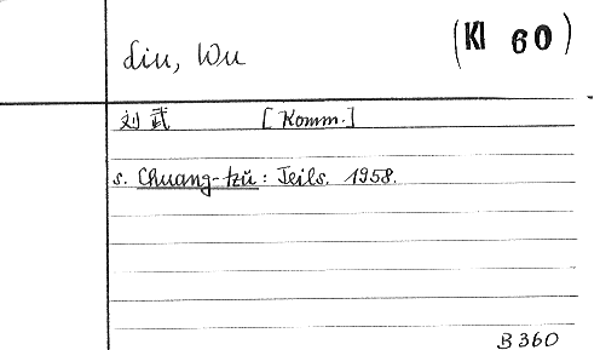 (Kl 60)
Liu, Wu
刘武 [Komm.]
s. Chuang-tzŭ: Teils. 1958.
B360